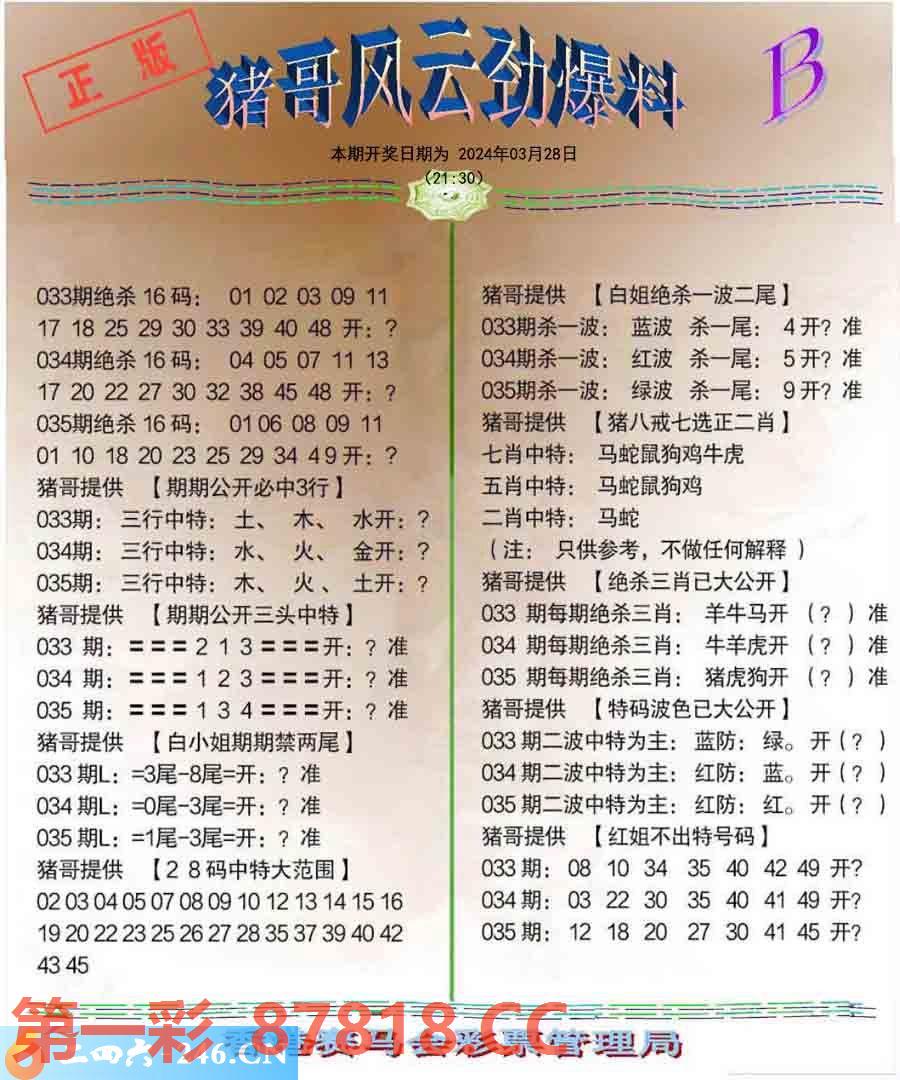 正版
猪哥风云劲爆料
B
本期开奖日期为 2024年03月28日
(21:30)
033期绝杀 16 码： 01 02 03 09 11
17 18 25 29 30 33 39 40 48 开：?
034期绝杀 16 码： 04 05 07 11 13
17 20 22 27 30 32 38 45 48 开：?
035期绝杀 16 码： 01 06 08 09 11
01 10 18 20 23 25 29 34 4 9 开：?
猪哥提供 【期期公开必中3行】
033期： 三行中特： 土、 木、 水开：?
034期： 三行中特： 水、 火、 金开：?
035期： 三行中特： 木、 火、 土开：?
猪哥提供 【期期公开三头中特】
033 期：＝＝＝2 1 3＝＝＝开：? 准
034 期：＝＝＝1 2 3＝＝＝开：? 准
035 期：＝＝＝1 3 4＝＝＝开：? 准
猪哥提供 【白小姐期期禁两尾】
033 期L：=3尾-8尾=开：? 准
034 期L：=0尾-3尾=开：? 准
035 期L：=1尾-3尾=开：? 准
猪哥提供 【2 8 码中特大范围】
02 03 04 05 07 08 09 10 12 13 14 15 16
19 20 22 23 25 26 27 28 35 37 39 40 42
43 45
猪哥提供 【白姐绝杀一波二尾】
033期杀一波： 蓝波 杀一尾： 4 开? 准
034期杀一波： 红波 杀一尾： 5 开? 准
035期杀一波： 绿波 杀一尾： 9 开? 准
猪哥提供 【猪八戒七选正二肖】
七肖中特： 马蛇鼠狗鸡牛虎
五肖中特： 马蛇鼠狗鸡
二肖中特： 马蛇
（注： 只供参考，不做任何解释 ）
猪哥提供 【绝杀三肖已大公开】
033 期每期绝杀三肖： 羊牛马开 （? ）准
034 期每期绝杀三肖： 牛羊虎开 （? ）准
035 期每期绝杀三肖： 猪虎狗开 （? ）准
猪哥提供 【特码波色已大公开】
033 期二波中特为主： 蓝防： 绿。 开（? ）
034 期二波中特为主： 红防： 蓝。 开（? ）
035 期二波中特为主： 红防： 红。 开（? ）
猪哥提供 【红姐不出特号码】
033 期： 08 10 34 35 40 42 49 开?
034 期： 03 22 30 35 40 41 49 开?
035 期： 12 18 20 27 30 41 45 开?
第一彩 87818.CC
二四六 246.CN
香港赛马会彩票管理局